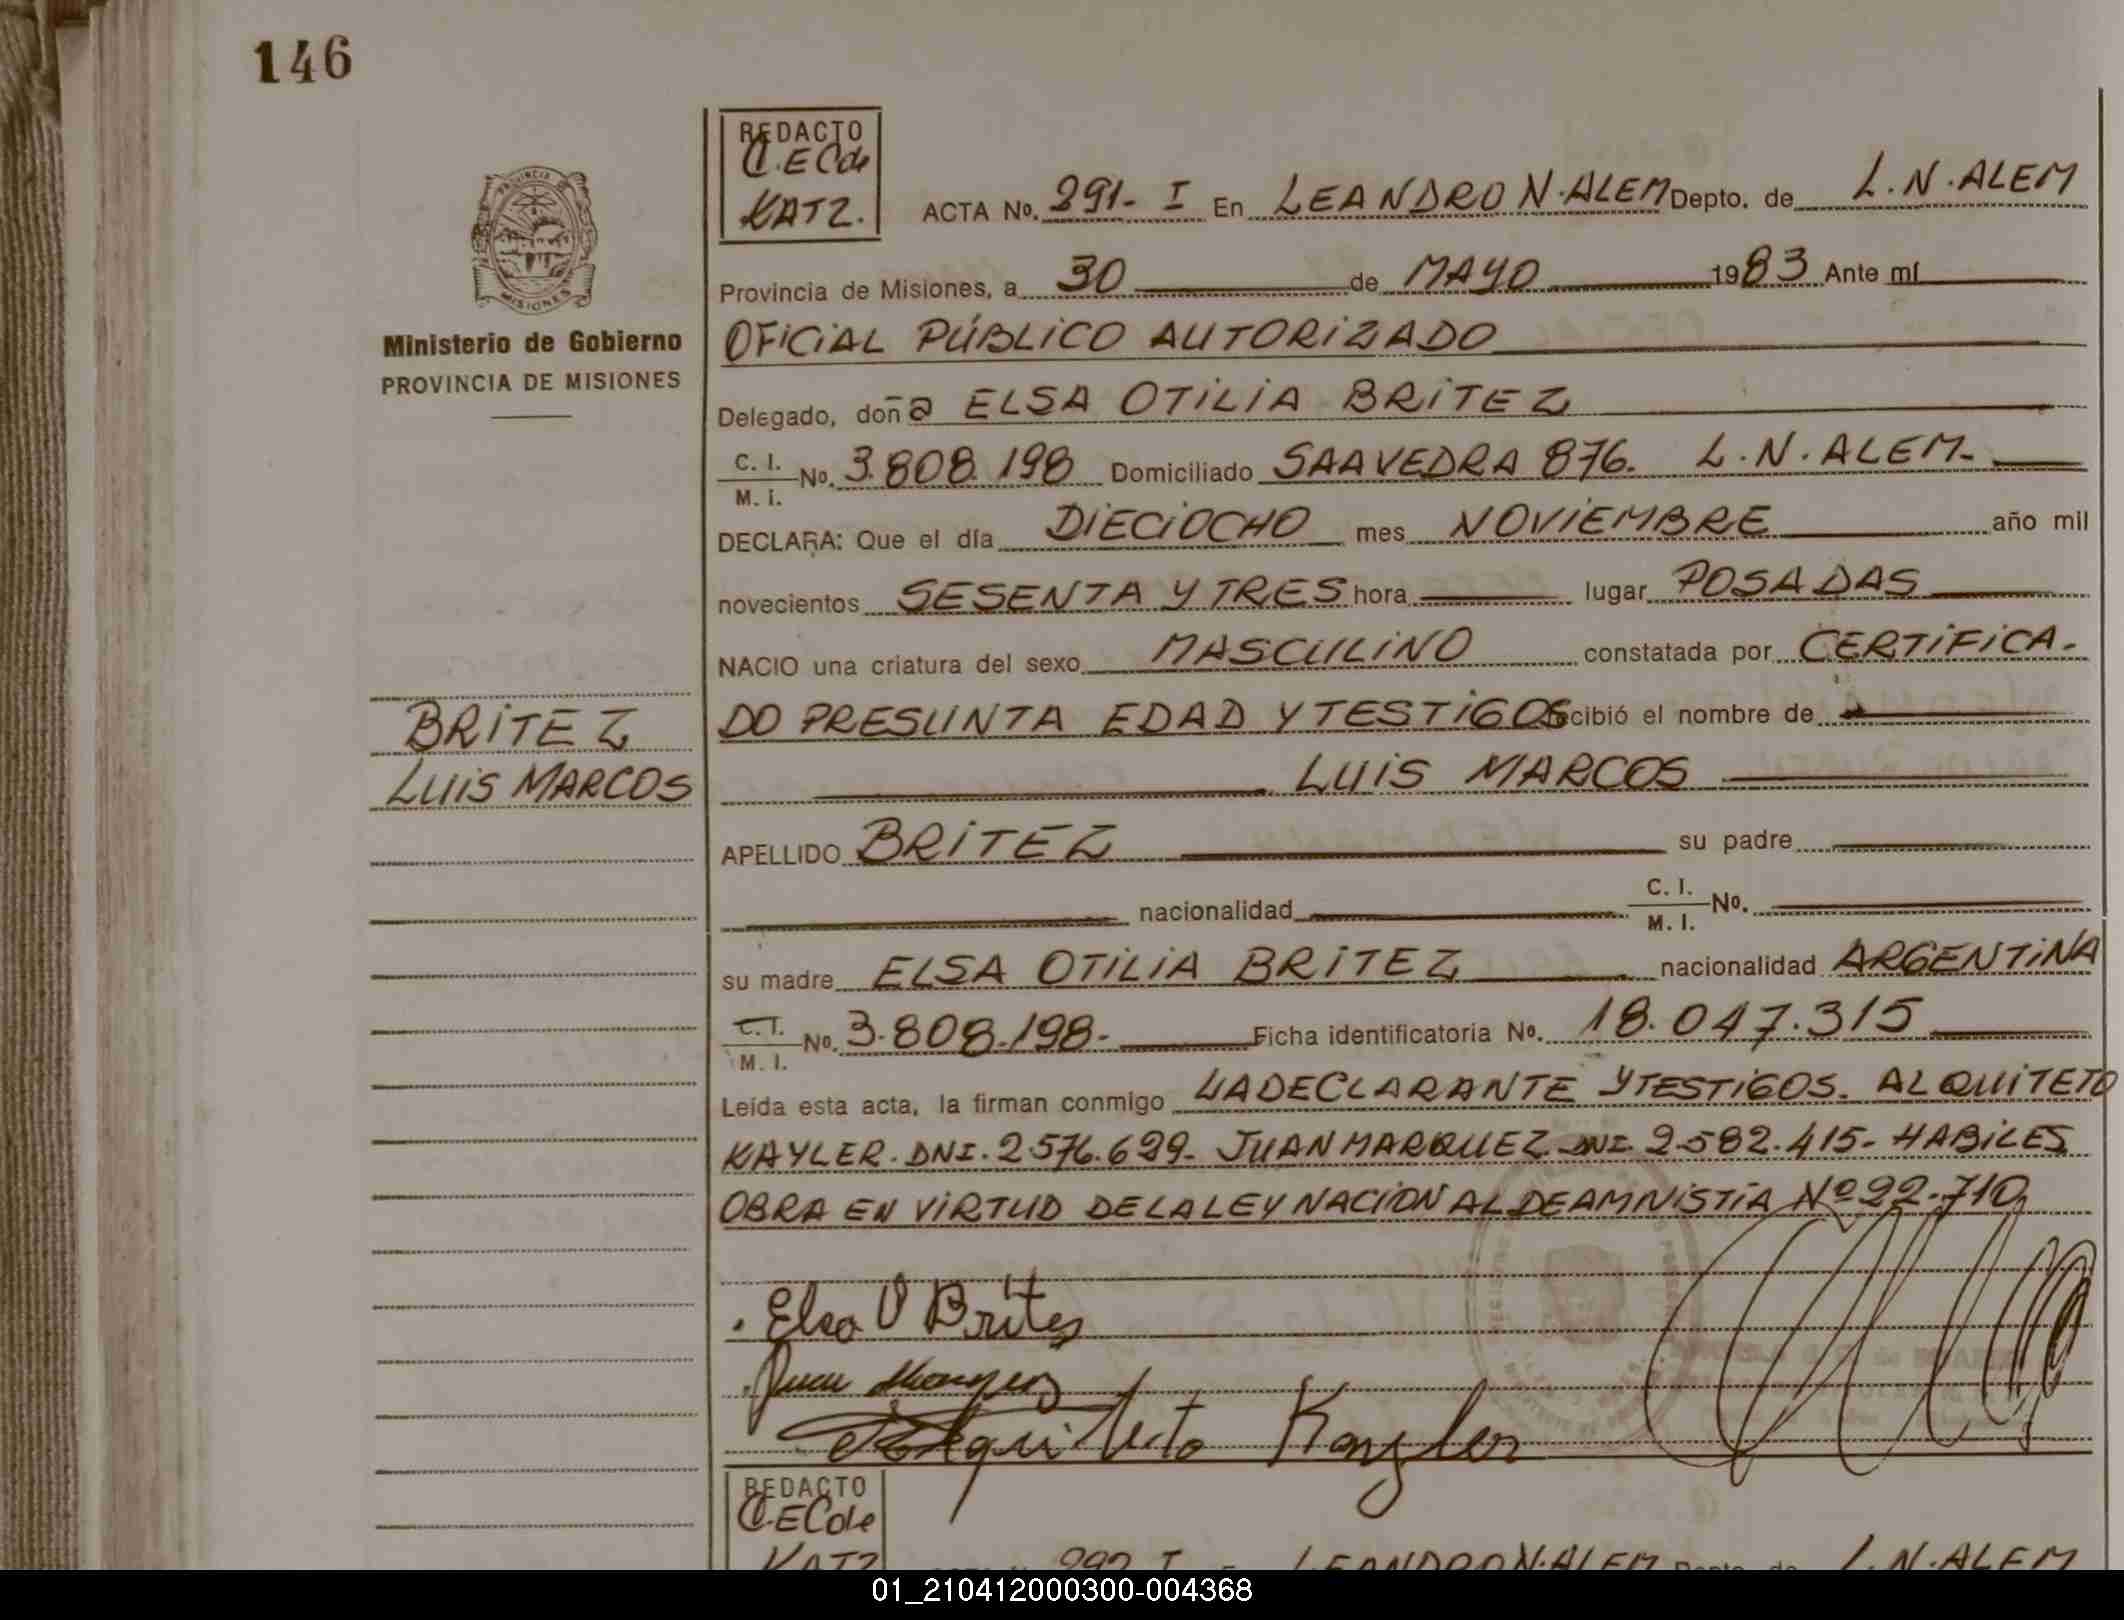 146
REDACTO
C.E.C de
KATZ.
ACTA No. 291- I En LEANDRO N. ALEM Depto. de L.N.ALEM
PROVINCIA DE
MISIONES
Provincia de Misiones, a 30 de MAYO 1983 Ante mí
Ministerio de Gobierno
PROVINCIA DE MISIONES
OFICIAL PÚBLICO AUTORIZADO
Delegado, doña ELSA OTILIA BRITEZ
C. I. M. I. No. 3.808.198 Domiciliado SAAVEDRA 876. L.N.ALEM-
DECLARA: Que el día DIECIOCHO mes NOVIEMBRE año mil
novecientos SESENTA Y TRES hora lugar POSADAS
NACIO una criatura del sexo MASCULINO constatada por CERTIFICA-
DO PRESUNTA EDAD Y TESTIGOS recibió el nombre de
BRITEZ
LUIS MARCOS
LUIS MARCOS
APELLIDO BRITEZ su padre
nacionalidad C. I. M. I. No.
su madre ELSA OTILIA BRITEZ nacionalidad ARGENTINA
C. I. M. I. No. 3.808.198- Ficha identificatoria No. 18.047.315
Leída esta acta, la firman conmigo LA DECLARANTE Y TESTIGOS. ALQUITETO
KAYLER. DNI. 2.576.699- JUAN MARQUEZ DNI. 2.582.415- HABILES
OBRA EN VIRTUD DE LA LEY NACIONAL DE AMNISTIA Nº 22.710
Elsa O Brites
Juan Marquez
Alquiteto Kayler
REDACTO
C.E.C de
KATZ
292 I En LEANDRO N. ALEM Depto. de L.N.ALEM
01_210412000300-004368